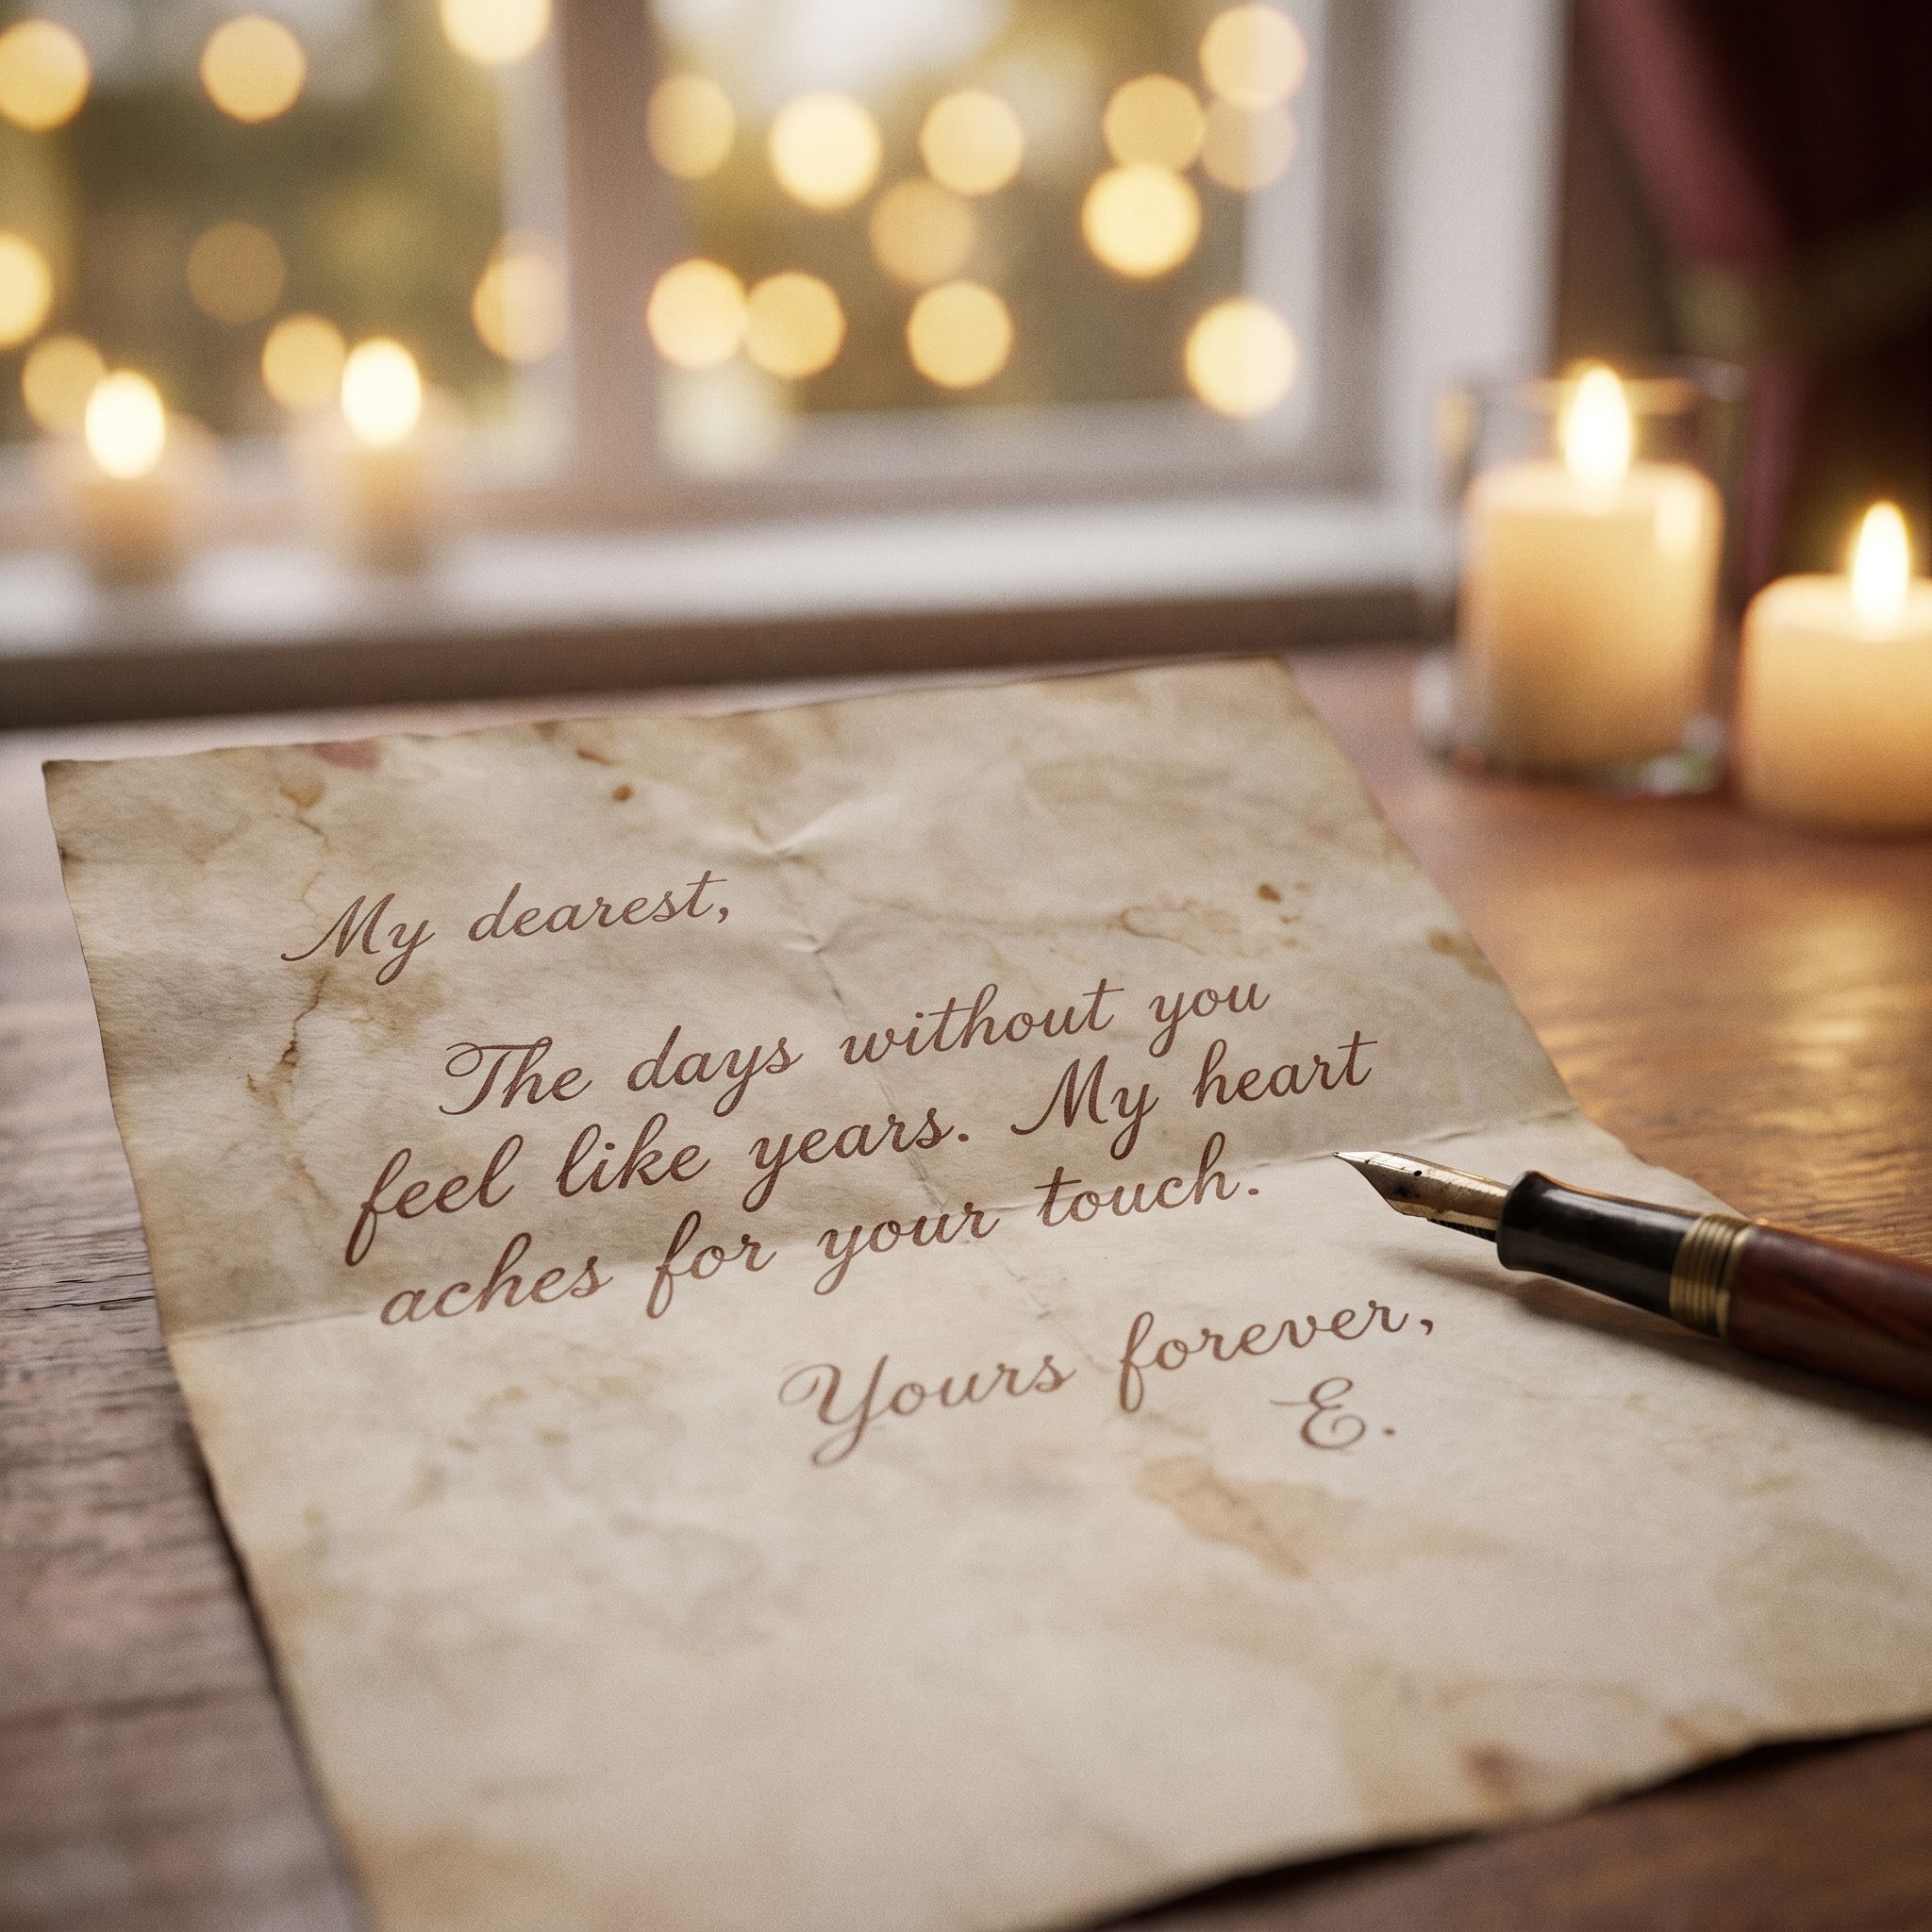 My dearest,
The days without you
feel like years. My heart
aches for your touch.
Yours forever,
E.